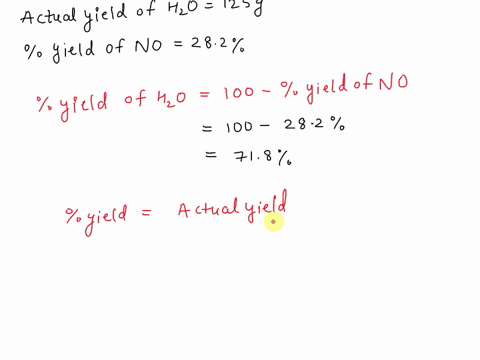 Actual yield of H2O = 125g
% yield of NO = 28.2%
% yield of H2O = 100 - % yield of NO
= 100 - 28.2%
= 71.8%
% yield = Actual yield